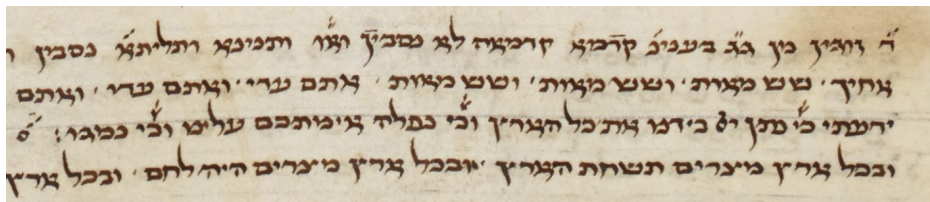 ד֗ זוגין מן ג֗ג֗ בעניינ֗ קדמא קדמאה לא נסבין וא֗ו ותנינא ותליתא֗ נסבין ו
אחיך · שש מאות · ושש מאות · ושש מאות · אתם עדי · ואתם עדי · ואתם
ידעתי כ֗י נתן יי בידנו את כל הארץ וכ֗י נפלה אימתכם עלינו וכ֗י נמגו :
ובכל ארץ מצרים תשחת הארץ · ובכל ארץ מצרים היה לחם · ובכל ארץ